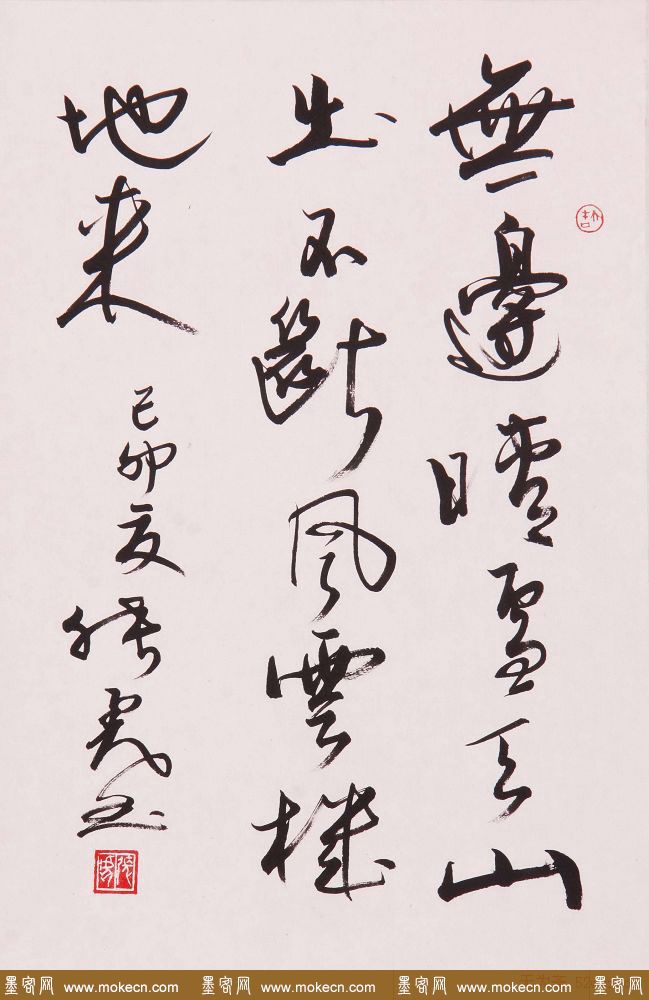 無邊晴雪天山
出不斷風雲極
地来
己卯夏
書
墨客网 www.mokecn.com 墨客网 www.mokecn.com 墨客网 www.mokecn.com 墨客网